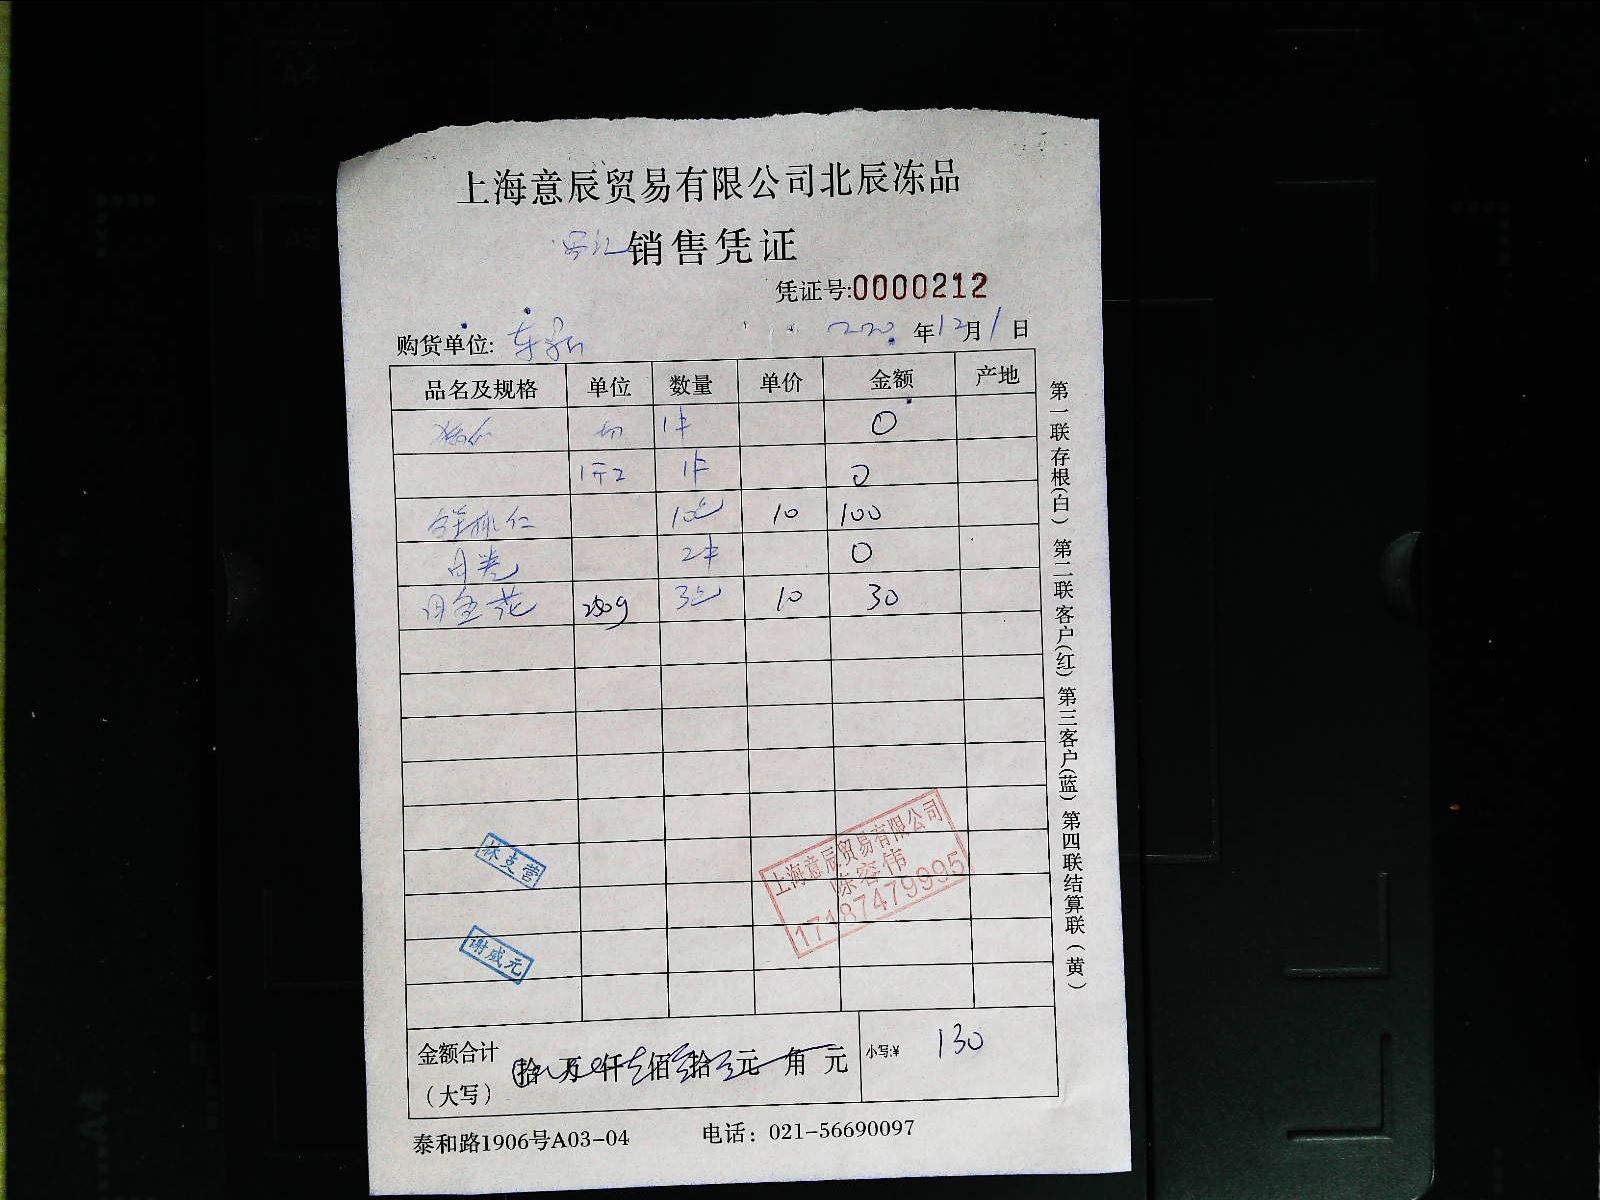 上海意辰贸易有限公司北辰冻品
销售凭证
凭证号:0000212
购货单位: 年12月1日
品名及规格 单位 数量 单价 金额 产地
切 1件 0
1开2 1件 0
鲜桃仁 10包 10 100
月卷 2件 0
月金花 250g 3包 10 30
林支营
谢威元
上海意辰贸易有限公司
陈容伟
17187479995
金额合计
(大写)
拾 万 仟 佰 拾 元 角 元
小写:¥ 130
泰和路1906号A03-04 电话: 021-56690097
第一联存根(白) 第二联客户(红) 第三客户(蓝) 第四联结算联(黄)